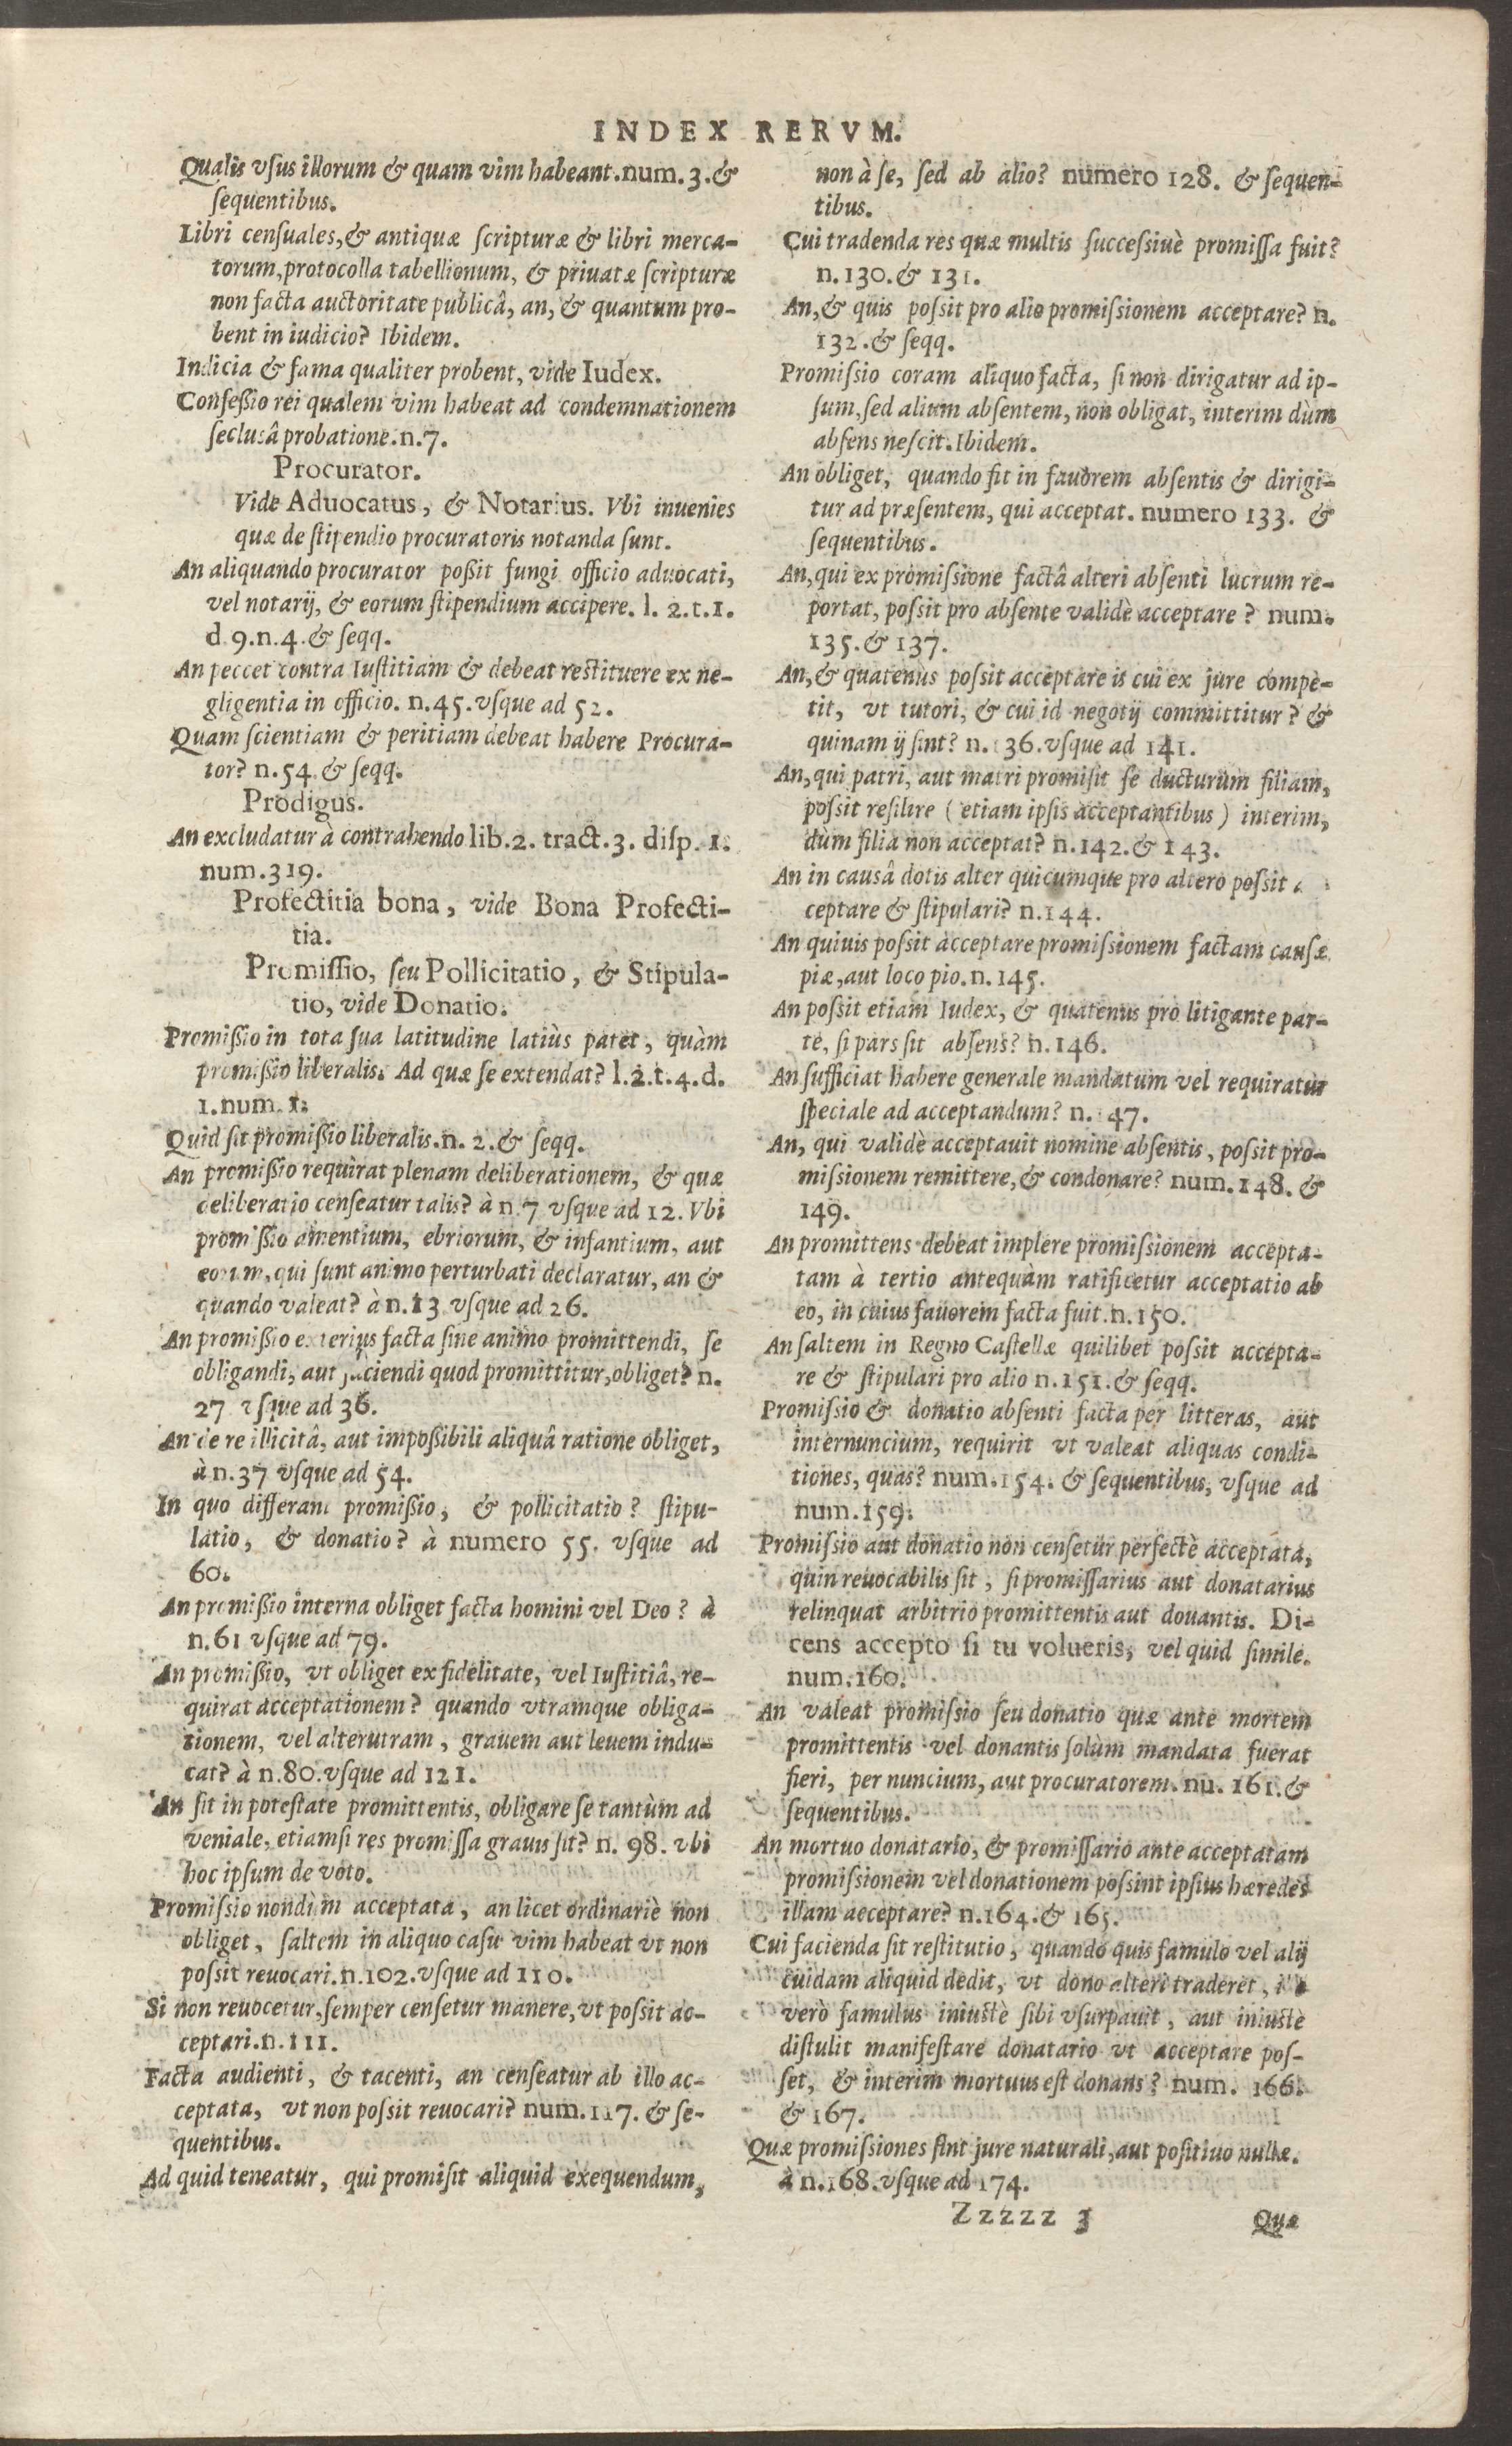 INDEX RERVM.
Qualis vſus illorum & quam vim habeant. num. 3. &
ſequentibus.
Libri cenſuales, & antiquæ ſcripturæ & libri merca-
torum, protocolla tabellionum, & priuatæ ſcripturæ
non facta auctoritate publicâ, an, & quantum pro-
bent in iudicio? Ibidem.
Indicia & fama qualiter probent, vide Iudex.
Confeßio rei qualem vim habeat ad condemnationem
ſeclusâ probatione. n. 7.
Procurator.
Vide Aduocatus, & Notarius. Vbi inuenies
quæ de ſtipendio procuratoris notanda ſunt.
An aliquando procurator poßit fungi officio aduocati,
vel notarij, & eorum ſtipendium accipere. l. 2. t. 1.
d 9. n. 4. & ſeqq.
An peccet contra Iuſtitiam & debeat reſtituere ex ne-
gligentia in officio. n. 45. vſque ad 52.
Quam ſcientiam & peritiam debeat habere Procura-
tor? n. 54. & ſeqq.
Prodigus.
An excludatur à contrahendo lib. 2. tract. 3. diſp. 1.
num. 319.
Profectitia bona, vide Bona Profecti-
tia.
Promiſſio, ſeu Pollicitatio, & Stipula-
tio, vide Donatio.
Promißio in tota ſua latitudine latiùs patet, quàm
promißio liberalis. Ad quæ ſe extendat? l. 2. t. 4. d.
1. num. 1.
Quid ſit promißio liberalis. n. 2. & ſeqq.
An promißio requirat plenam deliberationem, & quæ
deliberatio cenſeatur talis? à n. 7 vſque ad 12. Vbi
promißio amentium, ebriorum, & infantium, aut
eorum, qui ſunt animo perturbati declaratur, an &
quando valeat? à n. 13 vſque ad 26.
An promißio exterius facta ſine animo promittendi, ſe
obligandi, aut faciendi quod promittitur, obliget? n.
27 vſque ad 36.
An de re illicitâ, aut impoßibili aliquâ ratione obliget,
à n. 37 vſque ad 54.
In quo differant promißio, & pollicitatio? ſtipu-
latio, & donatio? à numero 55. vſque ad
60.
An promißio interna obliget facta homini vel Deo? à
n. 61 vſque ad 79.
An promißio, vt obliget ex fidelitate, vel Iuſtitiâ, re-
quirat acceptationem? quando vtramque obliga-
tionem, vel alterutram, grauem aut leuem indu-
cat? à n. 80. vſque ad 121.
An ſit in poteſtate promittentis, obligare ſe tantùm ad
veniale, etiamſi res promiſſa grauis ſit? n. 98. vbi
hoc ipſum de voto.
Promiſsio nondùm acceptata, an licet ordinariè non
obliget, ſaltem in aliquo caſu vim habeat vt non
poſsit reuocari. n. 102. vſque ad 110.
Si non reuocetur, ſemper cenſetur manere, vt poſsit ac-
ceptari. n. 111.
Facta audienti, & tacenti, an cenſeatur ab illo ac-
ceptata, vt non poſsit reuocari? num. 117. & ſe-
quentibus.
Ad quid teneatur, qui promiſit aliquid exequendum,
non à ſe, ſed ab alio? numero 128. & ſequen-
tibus.
Cui tradenda res quæ multis ſucceſsiuè promiſſa fuit?
n. 130. & 131.
An, & quis poſsit pro alio promiſsionem acceptare? n.
132. & ſeqq.
Promiſsio coram aliquo facta, ſi non dirigatur ad ip-
ſum, ſed alium abſentem, non obligat, interim dùm
abſens neſcit. Ibidem.
An obliget, quando fit in fauorem abſentis & dirigi-
tur ad præſentem, qui acceptat. numero 133. &
ſequentibus.
An, qui ex promiſsione factâ alteri abſenti lucrum re-
portat, poſsit pro abſente validè acceptare? num.
135. & 137.
An, & quatenus poſsit acceptare is cui ex jure compe-
tit, vt tutori, & cui id negotij committitur? &
quinam ij ſint? n. 136. vſque ad 141.
An, qui patri, aut matri promiſit ſe ducturum filiam,
poſsit reſilire (etiam ipſis acceptantibus) interim,
dùm filia non acceptat? n. 142. & 143.
An in causâ dotis alter quicumque pro altero poſsit a
ceptare & ſtipulari? n. 144.
An quiuis poſsit acceptare promiſsionem factam cauſæ
piæ, aut loco pio. n. 145.
An poſsit etiam Iudex, & quatenus pro litigante par-
te, ſi pars ſit abſens? n. 146.
An ſufficiat habere generale mandatum vel requiratur
ſpeciale ad acceptandum? n. 147.
An, qui validè acceptauit nomine abſentis, poſsit pro-
miſsionem remittere, & condonare? num. 148. &
149.
An promittens debeat implere promiſsionem accepta-
tam à tertio antequàm ratificetur acceptatio ab
eo, in cuius fauorem facta fuit. n. 150.
An ſaltem in Regno Caſtellæ quilibet poſsit accepta-
re & ſtipulari pro alio n. 151. & ſeqq.
Promiſsio & donatio abſenti facta per litteras, aut
internuncium, requirit vt valeat aliquas condi-
tiones, quas? num. 154. & ſequentibus, vſque ad
num. 159.
Promiſsio aut donatio non cenſetur perfectè acceptata,
quin reuocabilis ſit, ſi promiſſarius aut donatarius
relinquat arbitrio promittentis aut donantis. Di-
cens accepto ſi tu volueris, vel quid ſimile.
num. 160.
An valeat promiſsio ſeu donatio quæ ante mortem
promittentis vel donantis ſolùm mandata fuerat
fieri, per nuncium, aut procuratorem. nu. 161. &
ſequentibus.
An mortuo donatario, & promiſſario ante acceptatam
promiſsionem vel donationem poſsint ipſius hæredes
illam acceptare? n. 164. & 165.
Cui facienda ſit reſtitutio, quando quis famulo vel alij
cuidam aliquid dedit, vt dono alteri traderet,
verò famulus iniuſtè ſibi vſurpauit, aut iniuſtè
diſtulit manifeſtare donatario vt acceptare poſ-
ſet, & interim mortuus eſt donans? num. 166.
& 167.
Quæ promiſsiones ſint jure naturali, aut poſitiuo nullæ.
à n. 168. vſque ad 174.
Zzzzz 3
Quæ